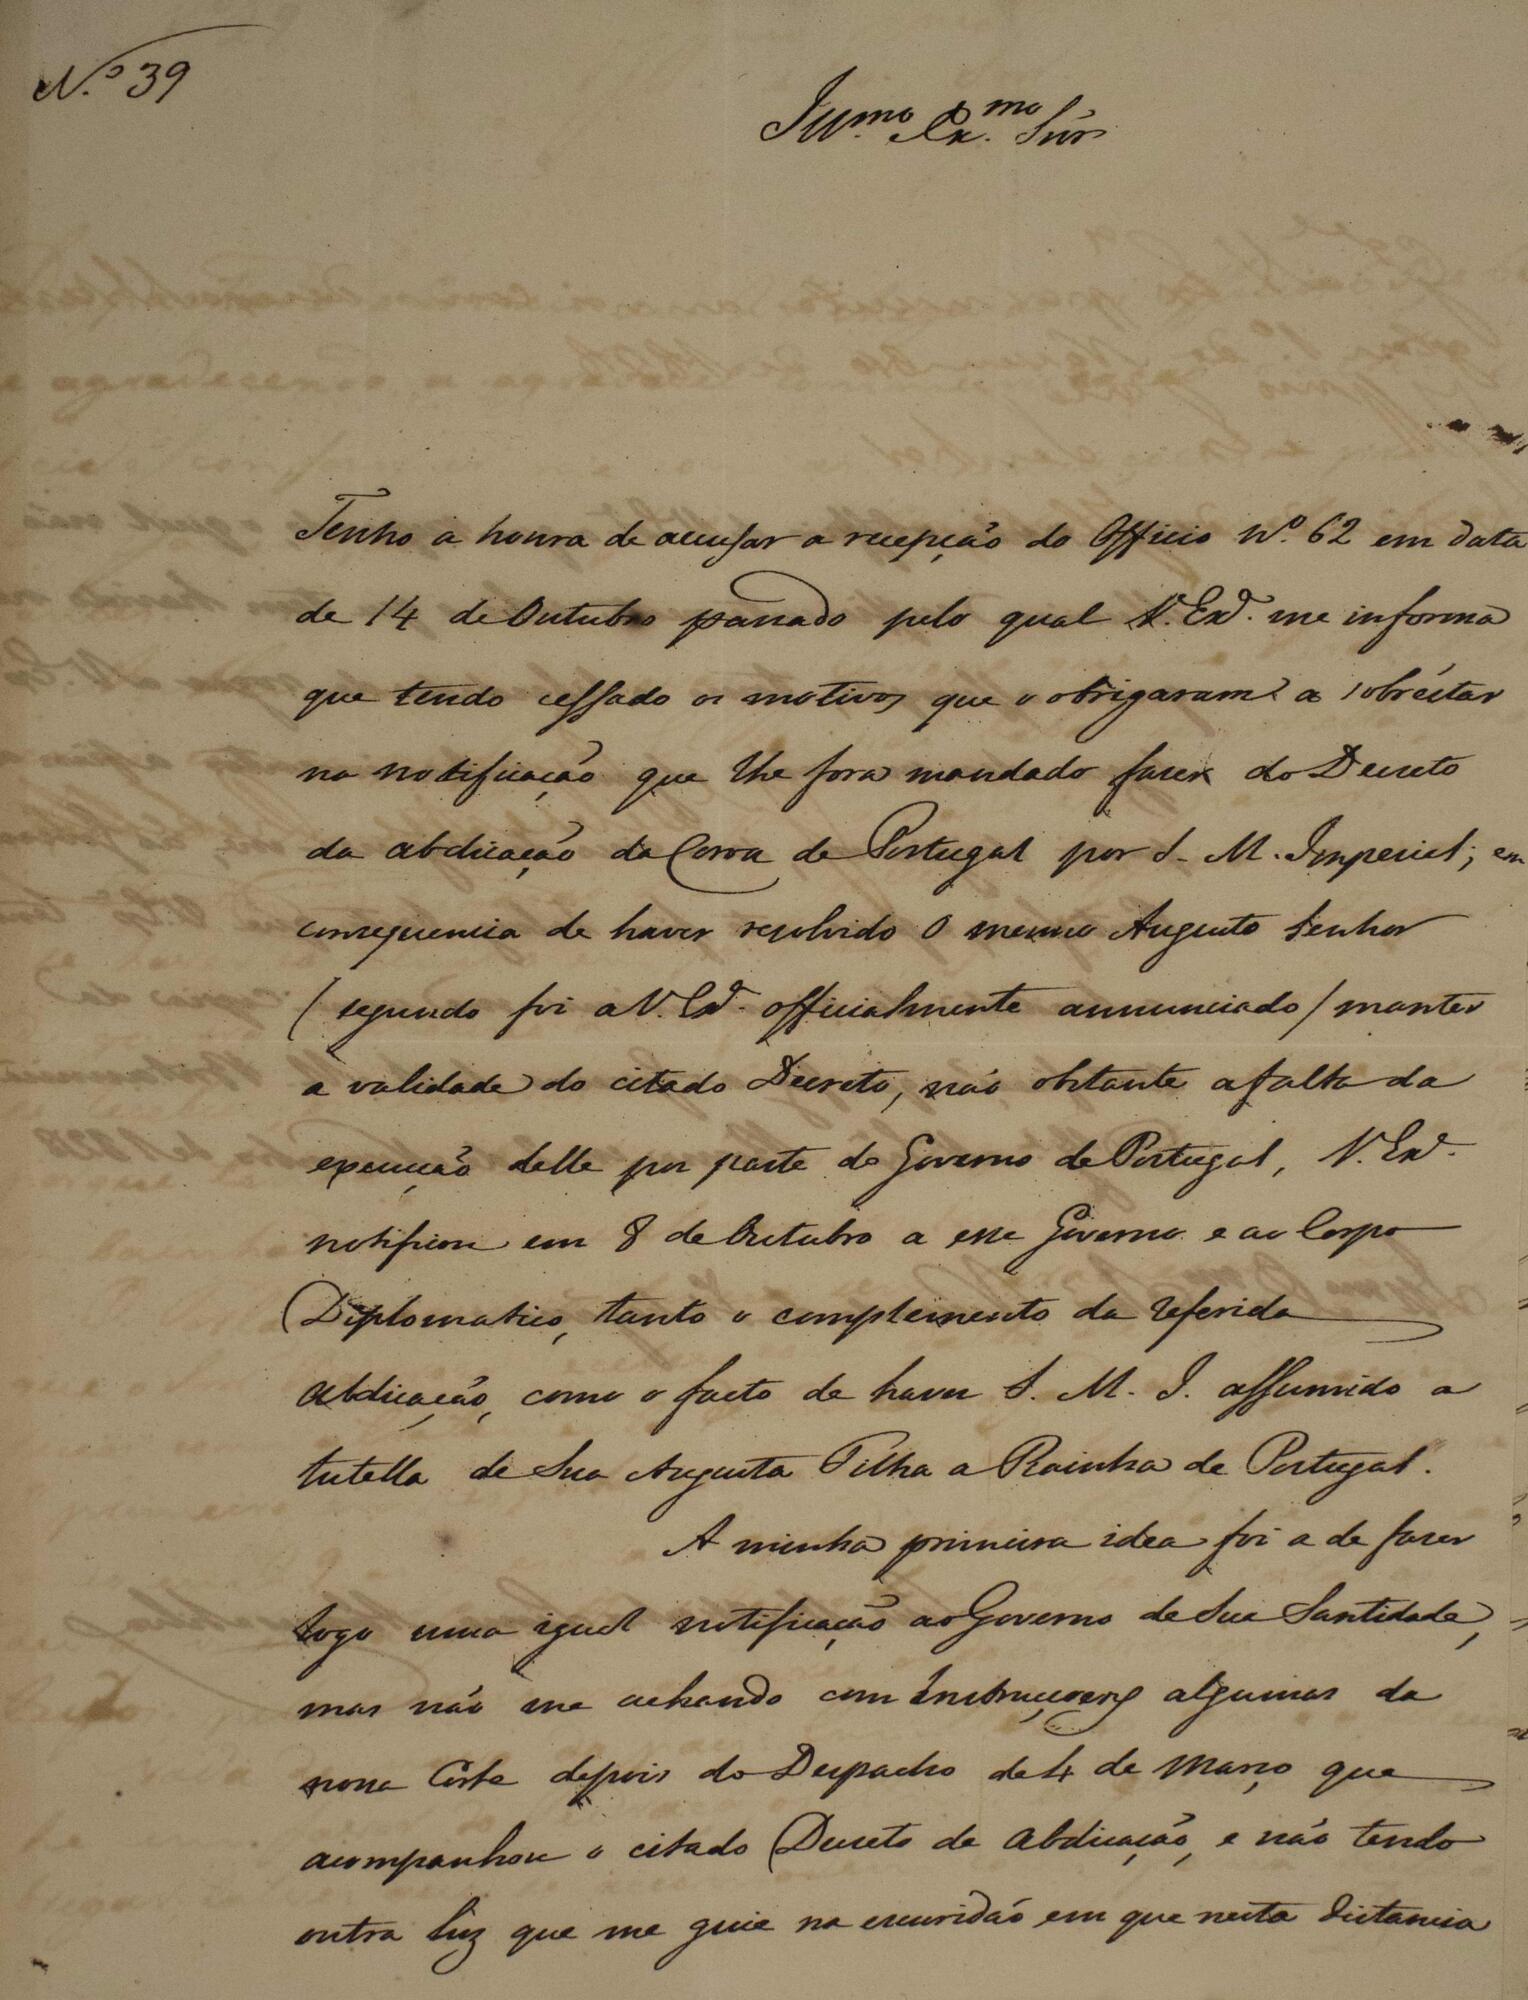 N.º 39
Illmo. Exmo. Snr
Tenho a honra de accusar a recepção do Officio Nº. 62 em data
de 14 de Outubro passado pelo qual V. Exª. me informa
que tendo cessado os motivos que o obrigaram a sobréstar
na notificação que lhe fora mandado fazer do Decreto
da abdicação da Coroa de Portugal por S. M. Imperial; em
consequencia de haver resolvido O mesmo Augusto Senhor
(segundo foi a V. Exª. officialmente annunciado) manter
a validade do citado Decreto, não obstante a falta da
execução delle por parte do Governo de Portugal, V. Exª.
notificou em 8 de Outubro a esse Governo e ao Corpo
Diplomatico, tanto o complemento da referida
Abdicação, como o facto de haver S. M. I. assumido a
tutella de Sua Augusta Filha a Rainha de Portugal.
A minha primeira idea foi a de fazer
logo uma igual notificação ao Governo de Sua Santidade,
mas não me achando com Instrucçoens algumas da
nossa Corte depois do Despacho de 4 de Março que
acompanhou o citado Decreto de Abdicação, e não tendo
outra luz que me guie na escuridão em que nesta distancia